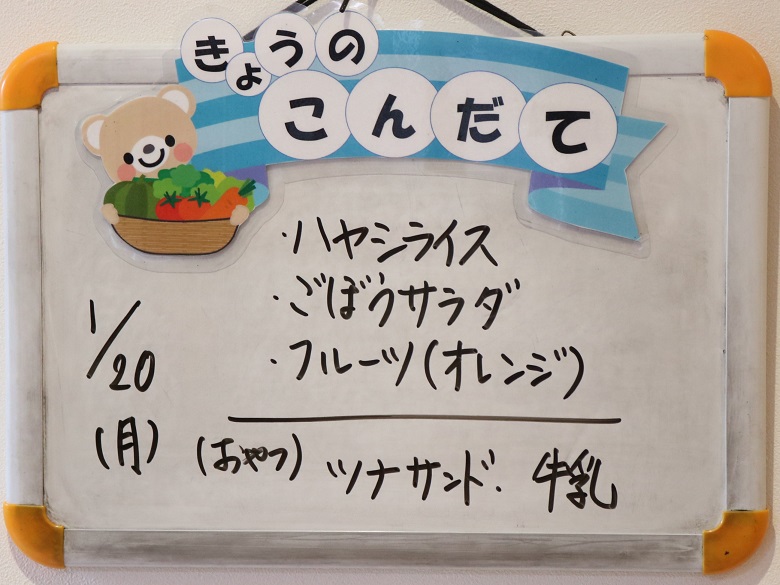 きょうの
こんだて
・ハヤシライス
・ごぼうサラダ
・フルーツ(オレンジ)
1/20
(月)
(おやつ) ツナサンド. 牛乳